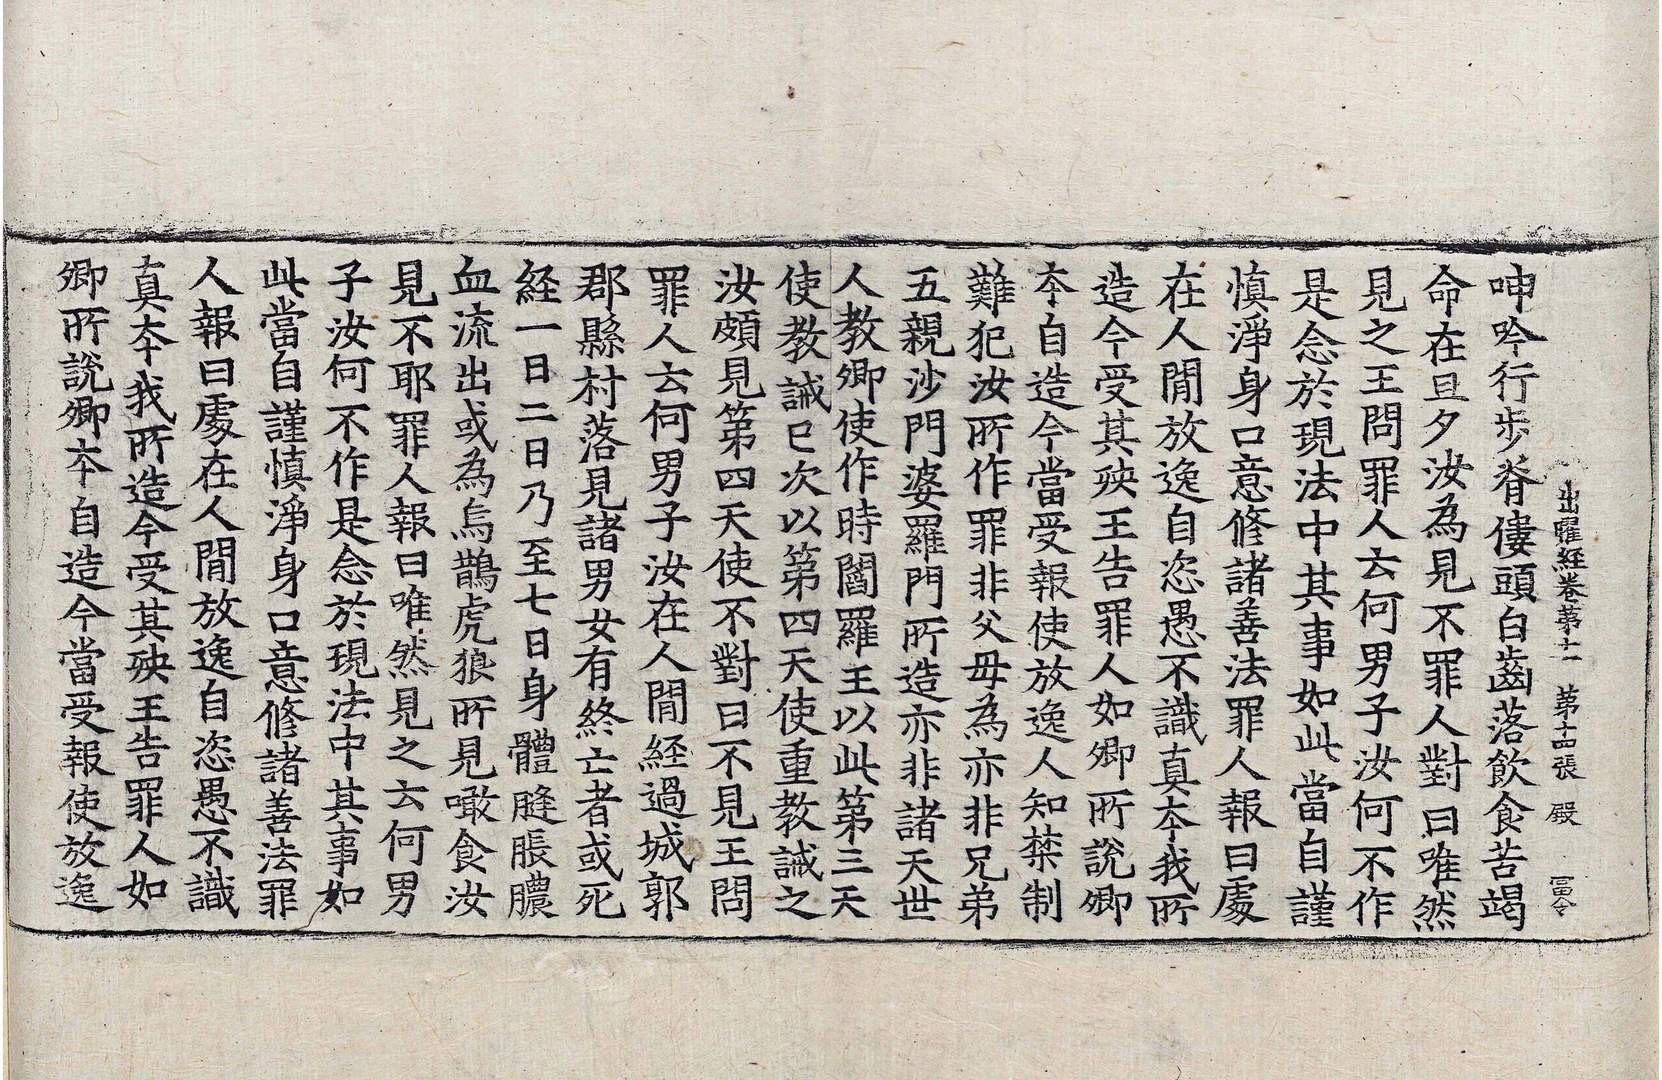 出曜經卷第十一 第十四張 殿 冨令
呻吟行步脊僂頭白齒落飲食苦竭
命在旦夕汝為見不罪人對曰唯然
見之王問罪人云何男子汝何不作
是念於現法中其事如此當自謹
慎淨身口意修諸善法罪人報曰處
在人閒放逸自恣愚不識真夲我所
造今受其殃王告罪人如卿所說卿
夲自造今當受報使放逸人知禁制
難犯汝所作罪非父母為亦非兄弟
五親沙門婆羅門所造亦非諸天世
人教卿使作時閻羅王以此第三天
使教誡已次以第四天使重教誡之
汝頗見第四天使不對曰不見王問
罪人云何男子汝在人閒経過城郭
郡縣村落見諸男女有終亡者或死
経一日二日乃至七日身體膖脹膿
血流出或為烏鵲虎狼所見噉食汝
見不耶罪人報曰唯然見之云何男
子汝何不作是念於現法中其事如
此當自謹慎淨身口意修諸善法罪
人報曰處在人閒放逸自恣愚不識
真夲我所造今受其殃王告罪人如
卿所說卿夲自造今當受報使放逸